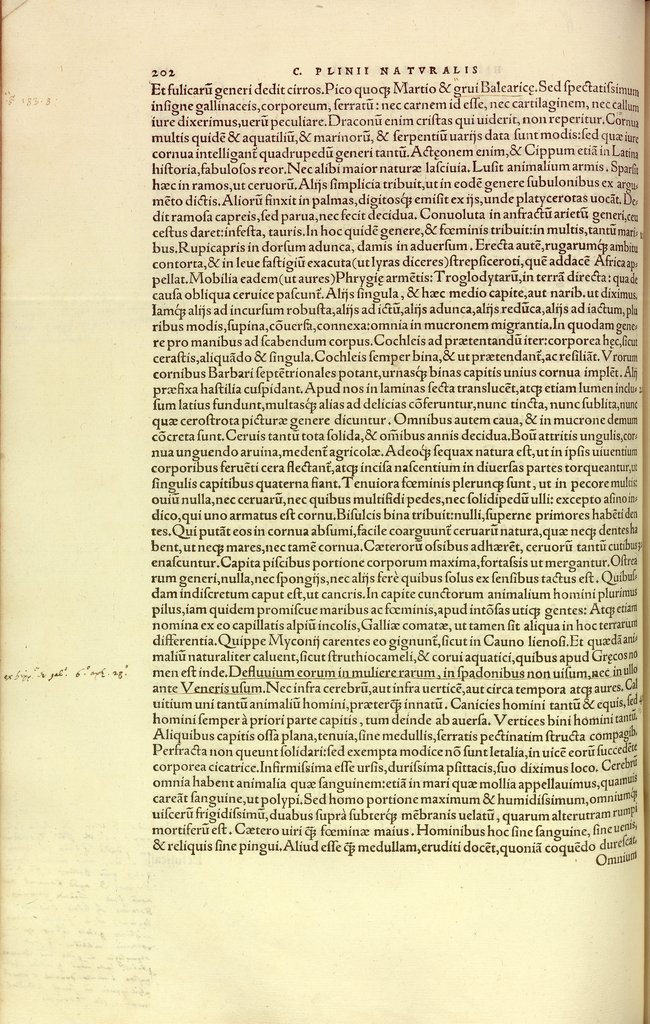 202 C. PLINII NATVRALIS
Et fulicarū generi dedit cirros. Pico quoqȝ Martio & grui Balearicę. Sed ſpectatiſſimum
inſigne gallinaceis, corporeum, ſerratū: nec carnem id eſſe, nec cartilaginem, nec callum
iure dixerimus, uerū peculiare. Draconū enim criſtas qui uiderit, non reperitur. Cornua
multis quidē & aquatiliū, & marinorū, & ſerpentiū uarijs data ſunt modis: ſed quæ iure
cornua intelligant̃ quadrupedū generi tantū. Actęonem enim, & Cippum etiā in Latina
hiſtoria, fabuloſos reor. Nec alibi maior naturæ laſciuia. Luſit animalium armis. Sparſit
hæc in ramos, ut ceruorū. Alijs ſimplicia tribuit, ut in eodē genere ſubulonibus ex argu⸗
mēto dictis. Aliorū finxit in palmas, digitosqȝ emiſit ex ijs, unde platycerotas uocāt. De⸗
dit ramoſa capreis, ſed parua, nec fecit decidua. Conuoluta in anfractū arietū generi, ceu
ceſtus daret: infeſta, tauris. In hoc quidē genere, & fœminis tribuit: in multis, tantū mari⸗
bus. Rupicapris in dorſum adunca, damis in aduerſum. Erecta autē, rugarumqȝ ambitu
contorta, & in leue faſtigiū exacuta (ut lyras diceres) ſtrepſiceroti, quē addacē Africa ap⸗
pellat. Mobilia eadem (ut aures) Phrygię armētis: Troglodytarū, in terrā directa: qua de
cauſa obliqua ceruice paſcunt̃. Alijs ſingula, & hæc medio capite, aut narib. ut diximus.
Iamqȝ alijs ad incurſum robuſta, alijs ad ictū, alijs adunca, alijs redūca, alijs ad iactum, plu
ribus modis, ſupina, cōuerſa, connexa: omnia in mucronem migrantia. In quodam gene⸗
re pro manibus ad ſcabendum corpus. Cochleis ad prætentandū iter: corporea hęc, ſicut
ceraſtis, aliquādo & ſingula. Cochleis ſemper bina, & ut prætendant̃, ac reſiliāt. Vrorum
cornibus Barbari ſeptētrionales potant, urnasqȝ binas capitis unius cornua implēt. Alij
præfixa haſtilia cuſpidant. Apud nos in laminas ſecta translucēt, atqȝ etiam lumen inclu⸗
ſum latius fundunt, multasqȝ alias ad delicias cōferuntur, nunc tincta, nunc ſublita, nunc
quæ ceroſtrota picturæ genere dicuntur. Omnibus autem caua, & in mucrone demum
cōcreta ſunt. Ceruis tantū tota ſolida, & om̃ibus annis decidua. Boū attritis ungulis, cor⸗
nua unguendo aruina, medent̃ agricolæ. Adeoqȝ ſequax natura eſt, ut in ipſis uiuentium
corporibus feruēti cera flectant̃, atqȝ inciſa naſcentium in diuerſas partes torqueantur, ut
ſingulis capitibus quaterna fiant. Tenuiora fœminis plerunqȝ ſunt, ut in pecore multis:
ouiū nulla, nec ceruarū, nec quibus multifidi pedes, nec ſolidipedū ulli: excepto aſino in⸗
dico, qui uno armatus eſt cornu. Biſulcis bina tribuit: nulli, ſuperne primores habēti den
tes. Qui putāt eos in cornua abſumi, facile coarguunt̃ ceruarū natura, quæ neqȝ dentes ha
bent, ut neqȝ mares, nec tamē cornua. Cæterorū oſſibus adhærēt, ceruorū tantū cutibus
enaſcuntur. Capita piſcibus portione corporum maxima, fortaſſis ut mergantur. Oſtrea
rum generi, nulla, nec ſpongijs, nec alijs ferè quibus ſolus ex ſenſibus tactus eſt. Quibuſ⸗
dam indiſcretum caput eſt, ut cancris. In capite cunctorum animalium homini plurimus
pilus, iam quidem promiſcue maribus ac fœminis, apud intōſas utiqȝ gentes: Atqȝ etiam
nomina ex eo capillatis alpiū incolis, Galliæ comatæ, ut tamen ſit aliqua in hoc terrarum
differentia. Quippe Myconij carentes eo gignunt̃, ſicut in Cauno lienoſi. Et quædā ani⸗
maliū naturaliter caluent, ſicut ſtruthiocameli, & corui aquatici, quibus apud Gręcos no
men eſt inde. Defluuium eorum in muliere rarum, in ſpadonibus non uiſum, nec in ullo
ante Veneris uſum. Nec infra cerebrū, aut infra uerticē, aut circa tempora atqȝ aures. Cal
uitium uni tantū animaliū homini, præterqȝ̃ innatū. Canicies homini tantū & equis, ſed
homini ſemper à priori parte capitis, tum deinde ab auerſa. Vertices bini homini tantū.
Aliquibus capitis oſſa plana, tenuia, ſine medullis, ſerratis pectinatim ſtructa compagib.
Perfracta non queunt ſolidari: ſed exempta modice nō ſunt letalia, in uicē eorū ſuccedēte
corporea cicatrice. Infirmiſſima eſſe urſis, duriſſima pſittacis, ſuo diximus loco. Cerebrū
omnia habent animalia quæ ſanguinem: etiā in mari quæ mollia appellauimus, quamuis
careāt ſanguine, ut polypi. Sed homo portione maximum & humidiſſimum, omniumqȝ
uiſcerū frigidiſſimū, duabus ſuprà ſubterqȝ mēbranis uelatū, quarum alterutram rumpi
mortiferū eſt. Cætero uiri qȝ̃ fœminæ maius. Hominibus hoc ſine ſanguine, ſine uenis,
& reliquis ſine pingui. Aliud eſſe qȝ̃ medullam, eruditi docēt, quoniā coquēdo dureſcat.
Omnium